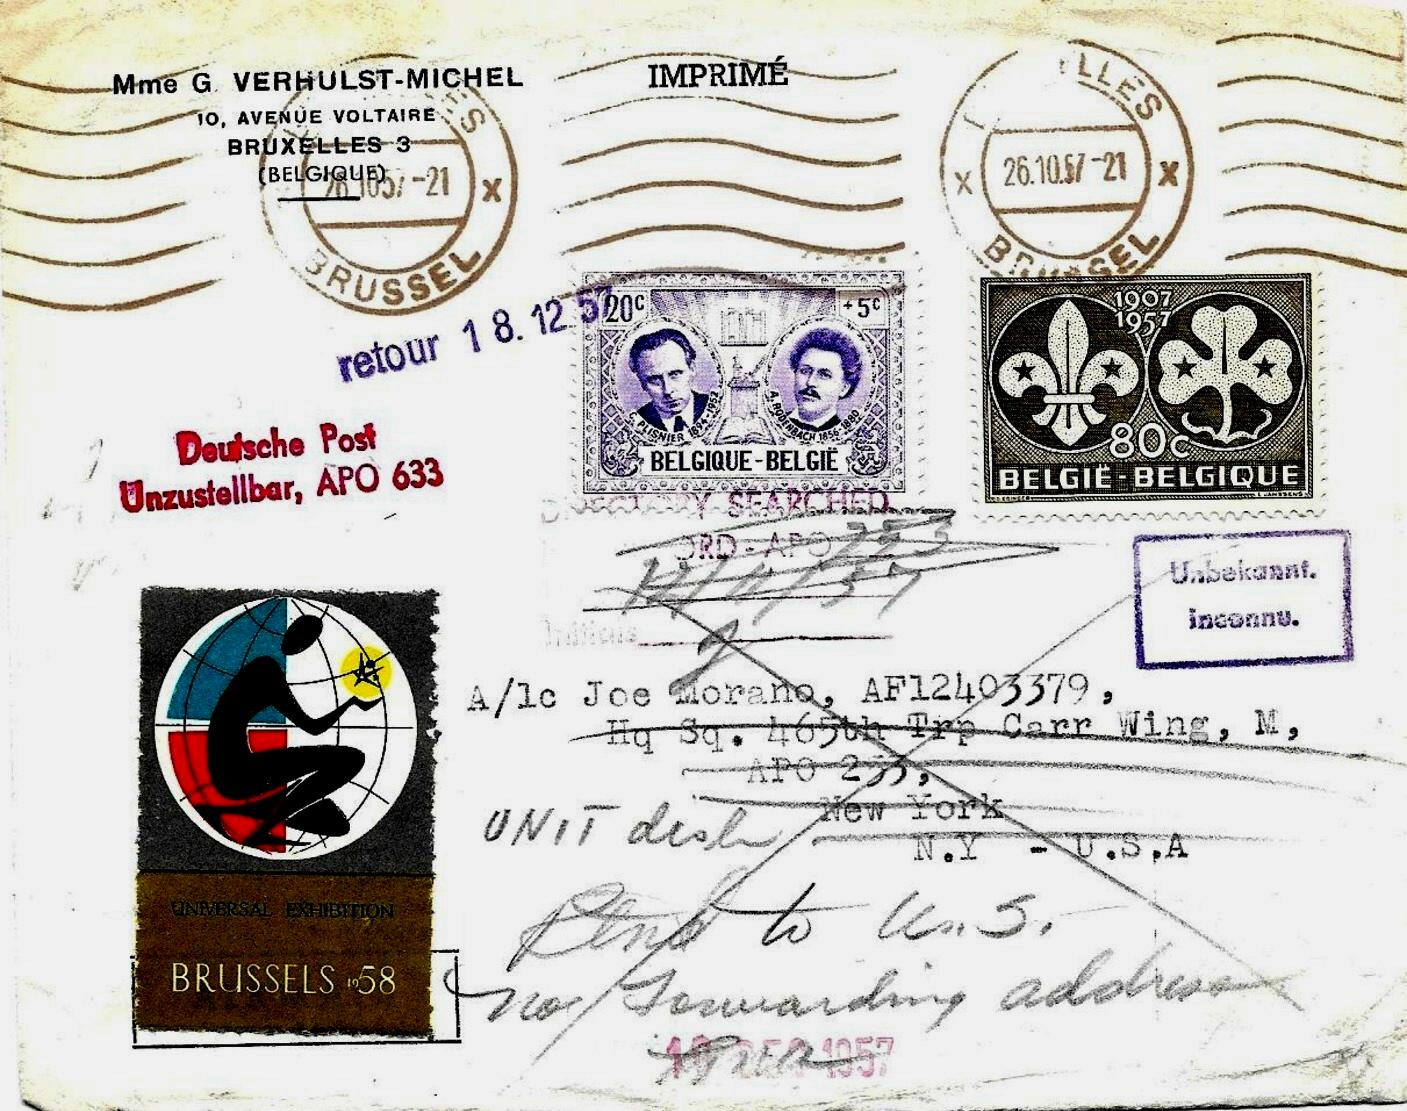 Mme G. VERHULST-MICHEL
10, AVENUE VOLTAIRE
BRUXELLES 3
(BELGIQUE)
IMPRIMÉ
26.10.57-21
BRUSSEL
ELLES
26.10.57-21
BRUSSEL
retour 18.12.57
20c
+5c
C. PLISNIER 1894-1952
A. RODENBACH 1856-1880
BELGIQUE-BELGIË
1907
1957
80c
BELGIË-BELGIQUE
Deutsche Post
Unzustellbar, APO 633
DIRECTORY SEARCHED
ORD-APO 253
12/11/57
Initials
Unbekannt.
inconnu.
A/1c Joe Morano, AF12403379,
Hq Sq. 465th Trp Carr Wing, M,
APO 253,
New York
N.Y - U.S.A
UNIT
to U.S.
no forwarding address
DEC 1957
UNIVERSAL EXHIBITION
BRUSSELS 1958